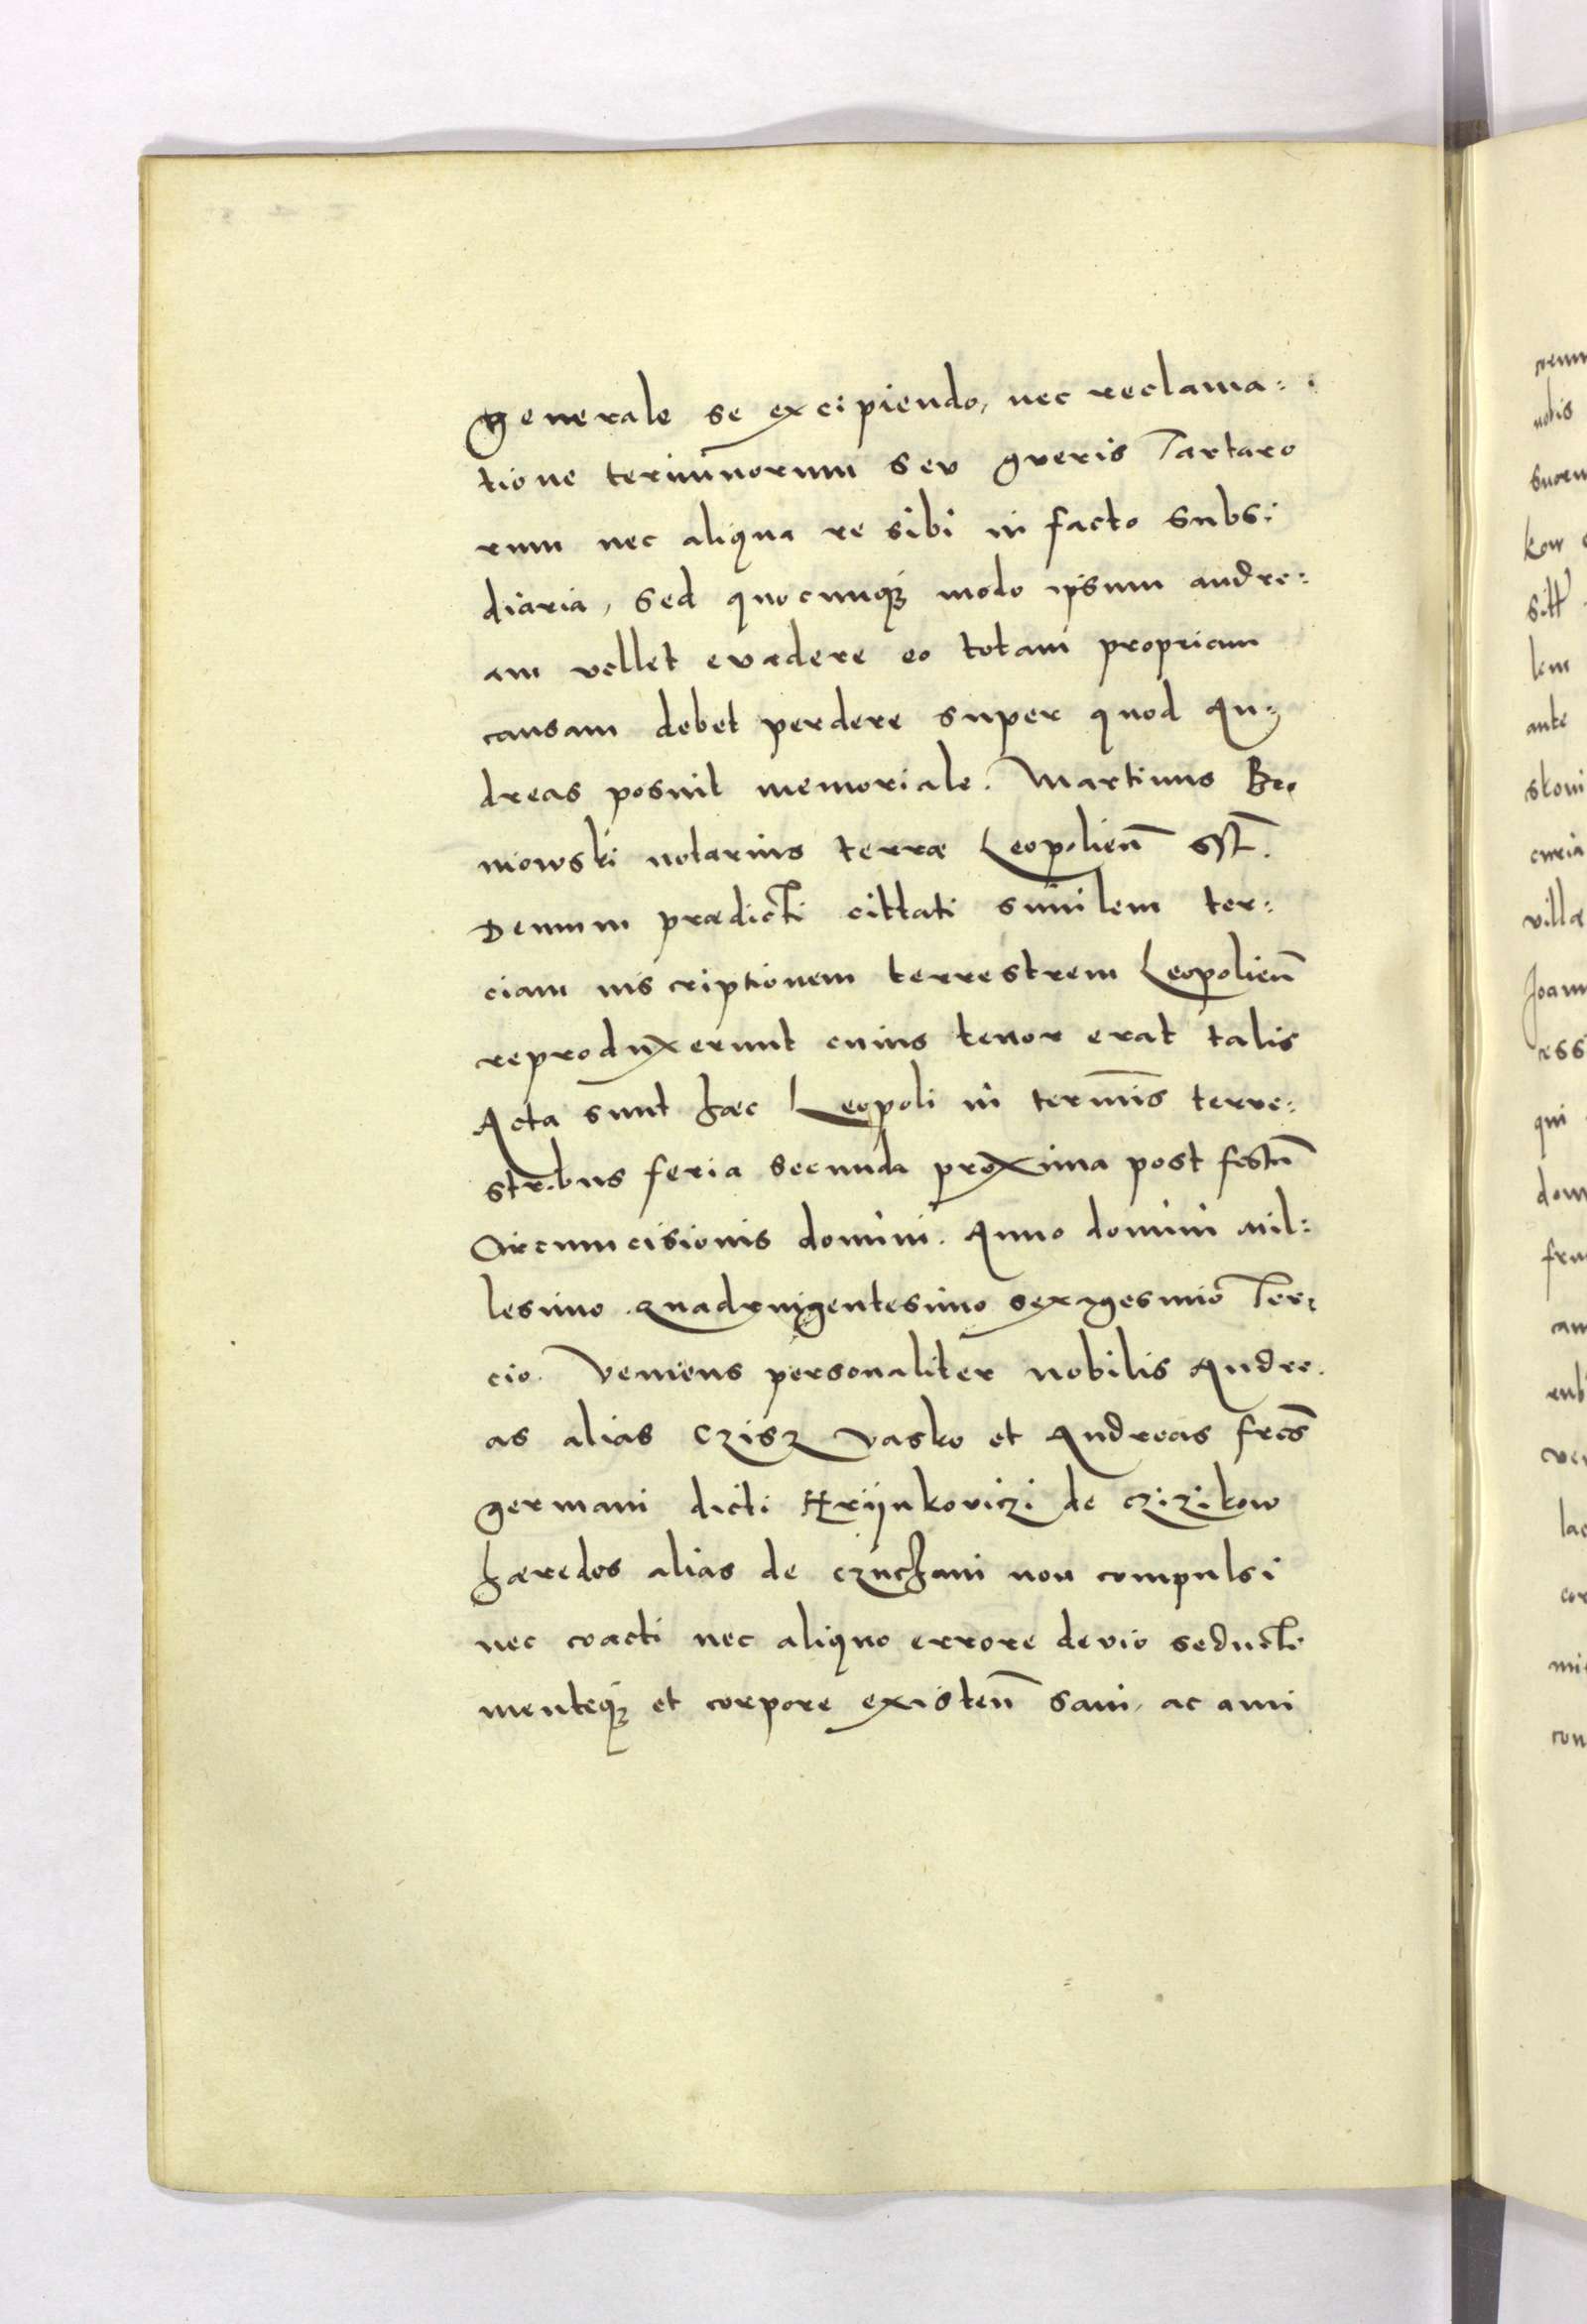 generale se excipiendo, nec reclama:
tione terminorum seu gueris Tartaro
rum nec aliqua re sibi in facto subsi
diaria, sed quocunq3 modo ipsum andre:
am vellet evadere eo totam propriam
causam debet perdere super quod An:
dreas posuit memoriale. Martinus Be
niowski notarius terræ Leopolien̄ s̄s̄t.
Demum prædicti cittati similem ter:
ciam inscriptionem terrestrem Leopolien̄
reproduxerunt cuius tenor erat talis
Acta sunt hæc Leopoli in term̄is terre:
stribus feria secunda proxima post festū
Circumcisionis domini. Anno domini mil:
lesimo quadringentesimo sexagesimo Ter:
cio. Veniens personaliter nobilis Andre.
as alias Czisz vasko et Andreas fr̄es
germani dicti Hrijnkoviczi de czizikow
hæredes alias de czuchani non compulsi
nec coacti nec aliquo errore devio seducti
menteq3 et corpore existen̄ sani, ac ami
nobis
kow
sitt
lem
ante
curia
villæ
qui